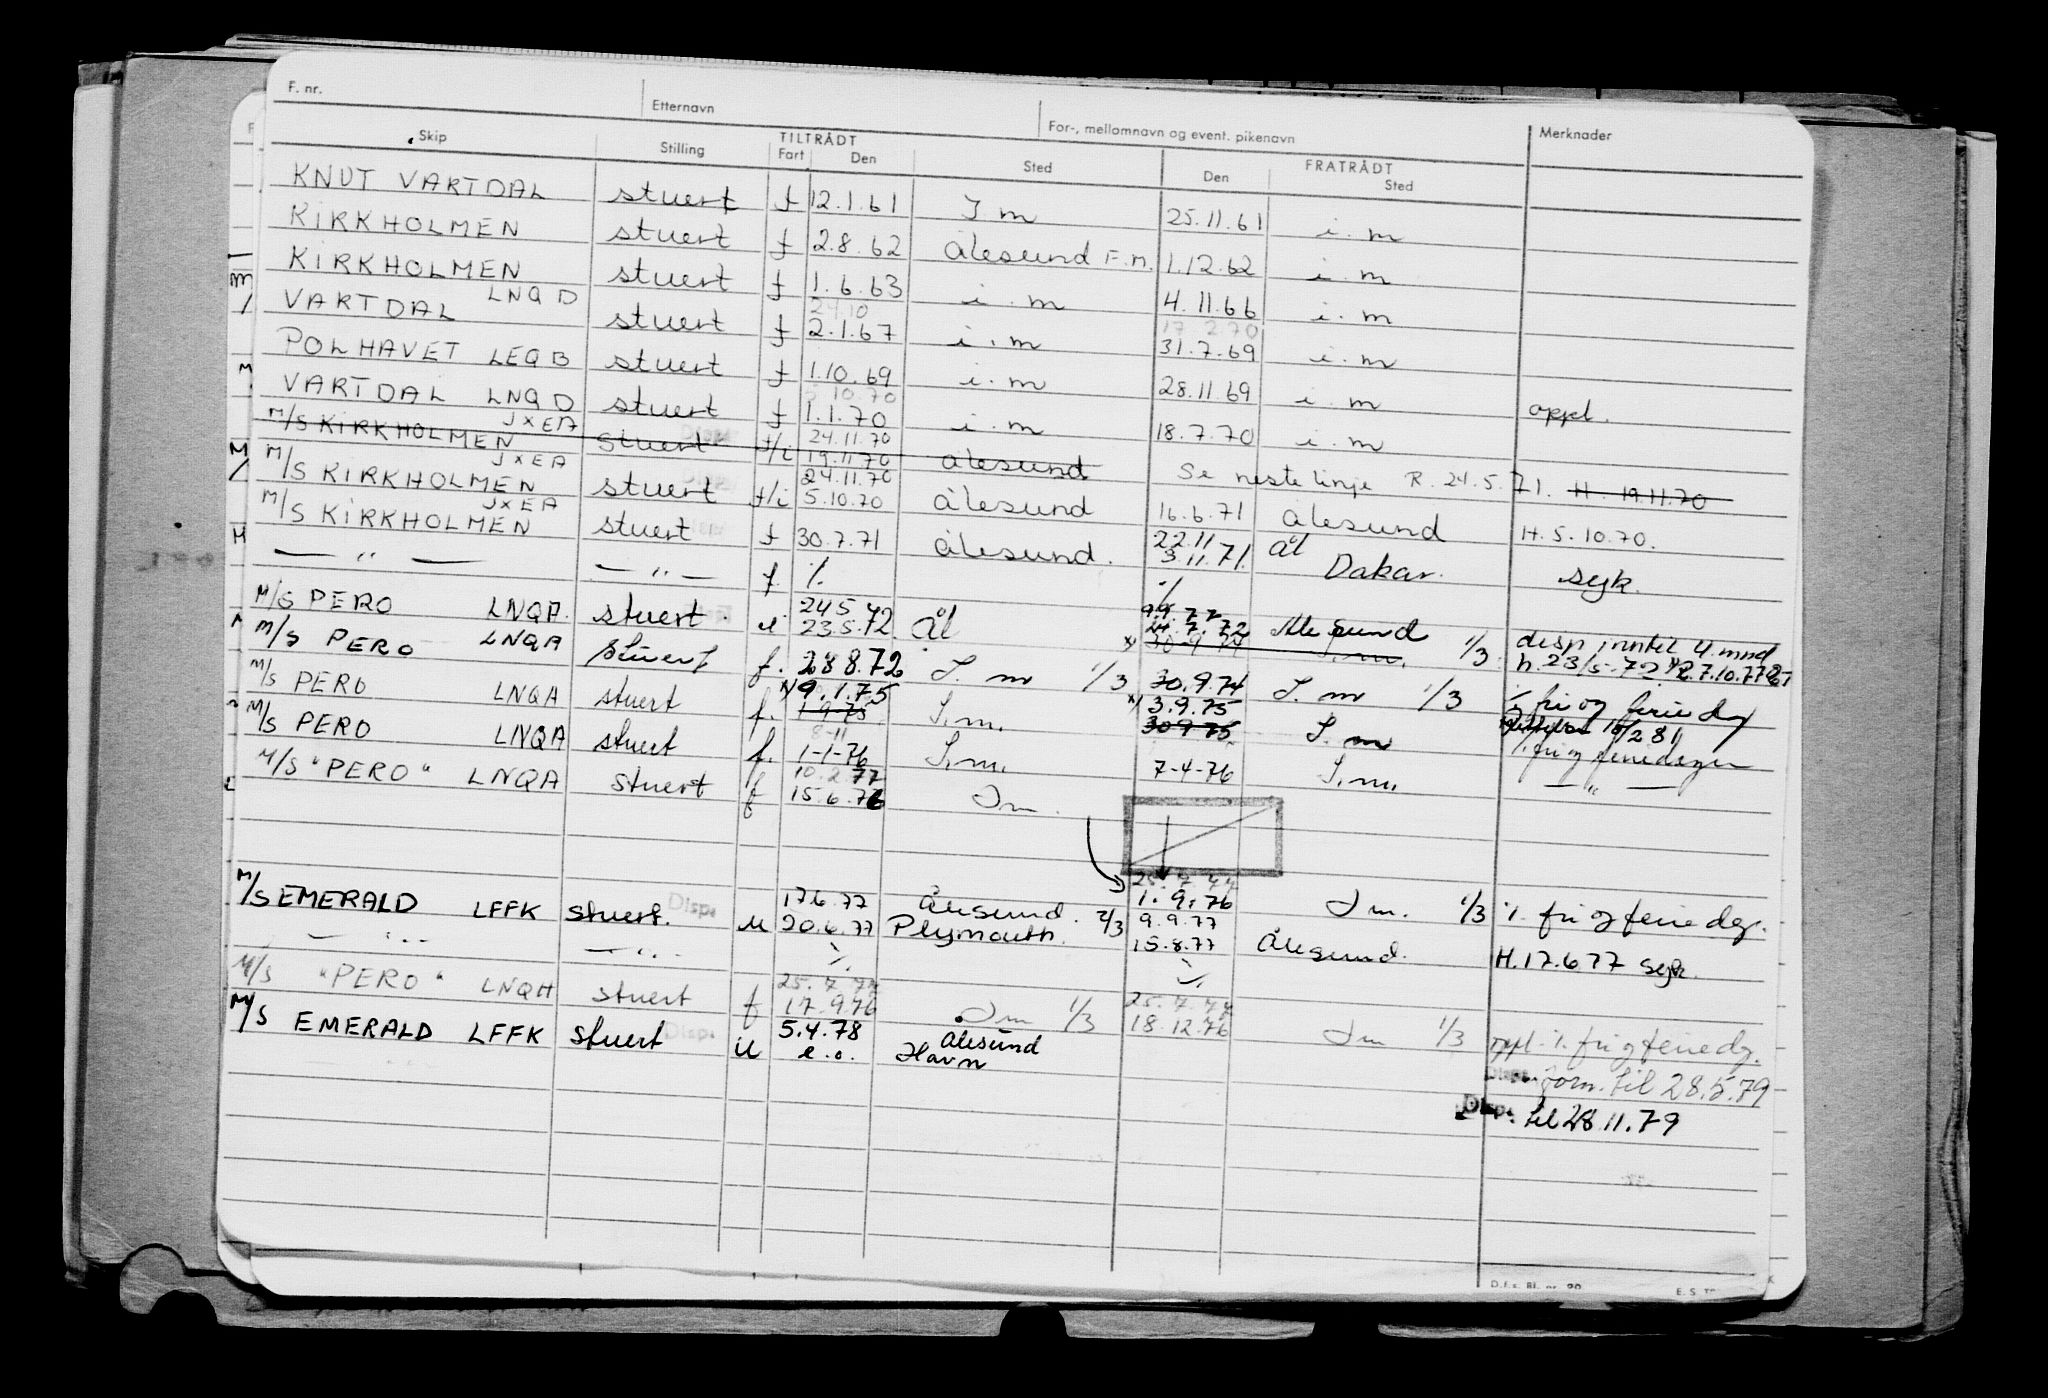 F. nr. Etternavn For-, mellomnavn og event. pikenavn Merknader
Skip Stilling TILTRÅDT Fart Den Sted FRATRÅDT Den Sted
KNUT VARTDAL stuert f 12.1.61 I m 25.11.61 i. m
KIRKHOLMEN stuert f 2.8.62 Ålesund F.m. 1.12.62 i. m
KIRKHOLMEN stuert f 1.6.63 i. m 4.11.66 i. m
VARTDAL LNQD stuert f 24.10 2.1.67 i. m 17.2.70 31.7.69 i. m
POLHAVET LEQB stuert f 1.10.69 i. m 28.11.69 i. m
VARTDAL LNQD stuert f 10.70 1.1.70 i. m 18.7.70 i. m oppl.
M/S KIRKHOLMEN JXEA stuert f/i 24.11.70 19.11.70 Ålesund Se neste linje R. 24.5.71. H. 19.11.70
M/S KIRKHOLMEN JXEA stuert f/i 24.11.70 5.10.70 Ålesund 16.6.71 Ålesund H. 5.10.70.
M/S KIRKHOLMEN JXEA stuert f 30.7.71 Ålesund. 22.11 3.11.71. Ål Dakar. syk.
— " — — " — f. %. %
M/S PERO LNQA. stuert. u 24.5 23.5.72. Ål 9.9.72 24.7.72 Ålesund 1/3 disp inntil 4. mnd
M/S PERO LNQA stuert f. 28.8.72 I. m 1/3 30.9.74 I. m 1/3 h. 23/5-72
M/S PERO LNQA stuert f. x) 9.1.75 1.9.75 I. m. x) 3.9.75 30.9.75 I. m %. fri og feriedag
M/S PERO LNQA stuert f. 8-11 1-1-76 I. m. 7-4-76 I. m. %. fri og feriedager
M/S "PERO" LNQA stuert f 10.2.77 15.6.76 I m. — " —
25.7.77
1.9.76 I m. 1/3 %. fri og feriedg.
M/S EMERALD LFFK stuert. Disp. u 17.6.77 20.6.77 Ålesund. Plymouth. 2/3 9.9.77 15.8.77 Ålesund. H. 17.6 77 syk.
— " — — " — %. %.
M/S "PERO" LNQA stuert f 25.7.77 17.9.76 I m 1/3 25.7.77 18.12.76 I m 1/3 oppl. %. fri og feriedg.
M/S EMERALD LFFK stuert Disp. u 5.4.78 e.o. Ålesund Havn
Disp. forn. til 28.5.79
Disp. til 28.11.79